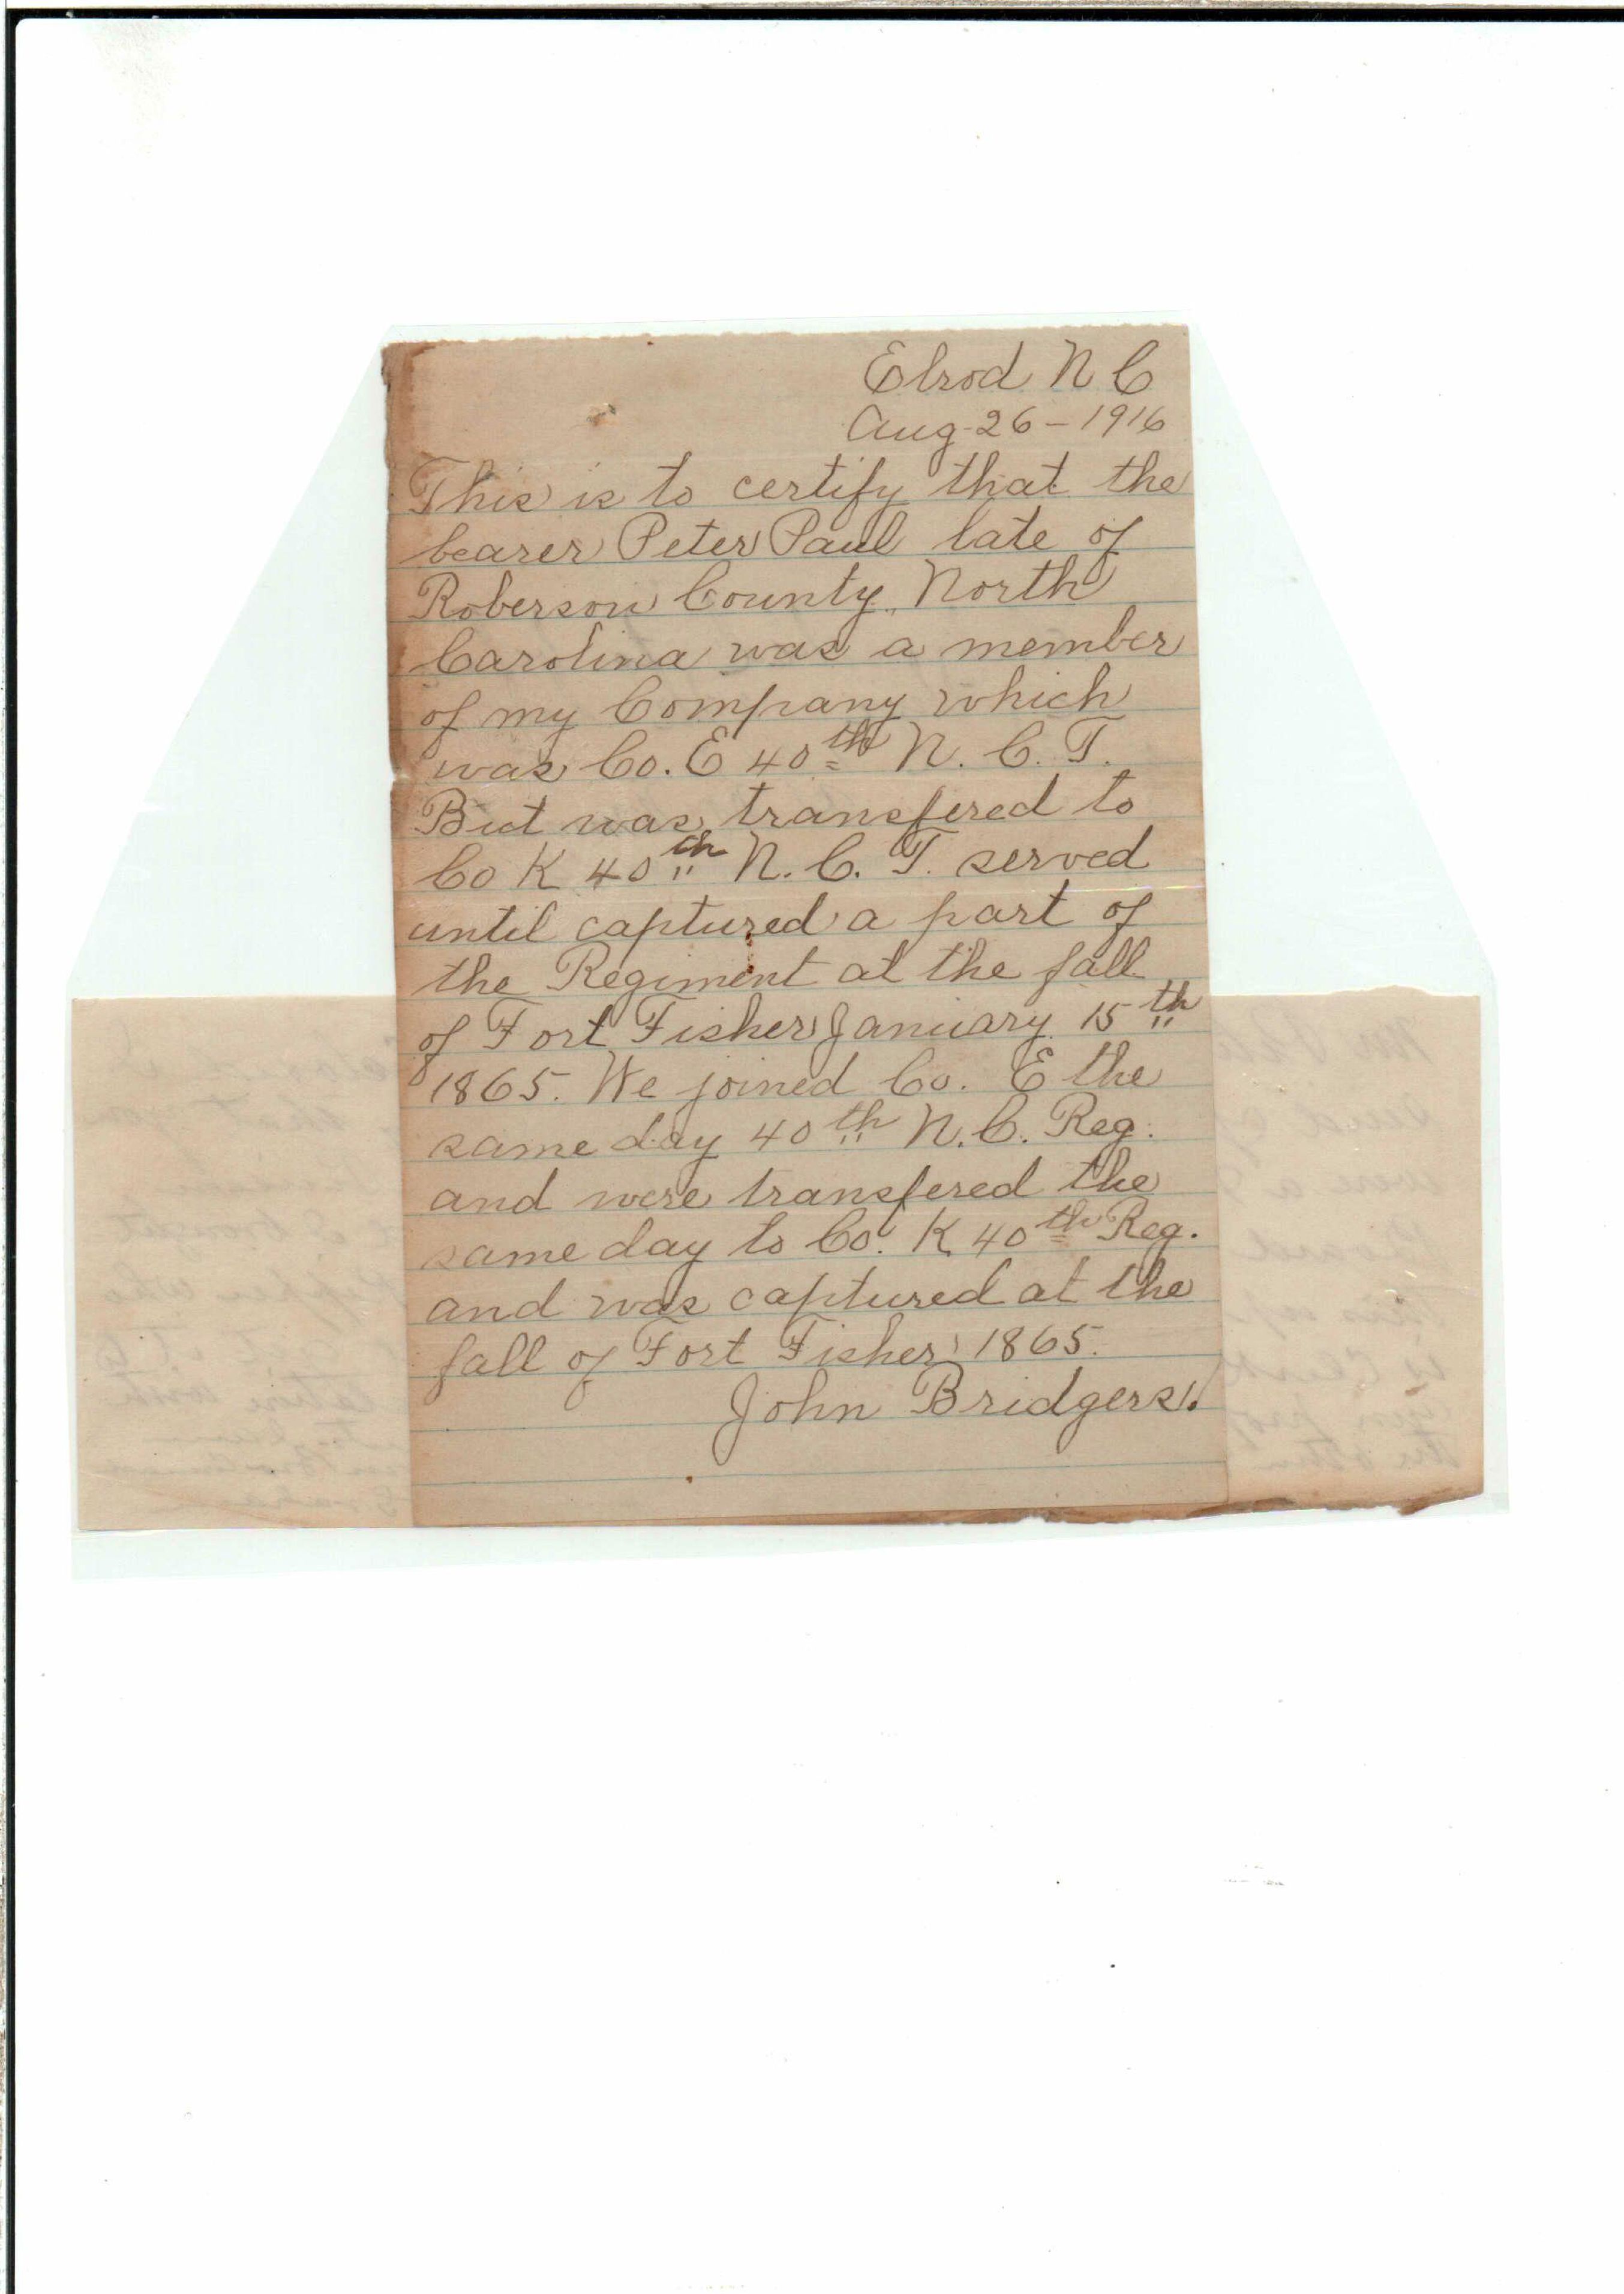 Elrod N C
Aug-26-1916
This is to certify that the
bearer Peter Paul late of
Roberson County, North
Carolina was a member
of my Company which
was Co. E 40th N. C. T.
But was transfered to
Co K 40th N. C. T. served
until captured a part of
the Regiment at the fall
of Fort Fisher January 15th
1865. We joined Co. E the
same day 40th N. C. Reg.
and were transfered the
same day to Co. K 40th Reg.
and was captured at the
fall of Fort Fisher 1865.
John Bridgers.